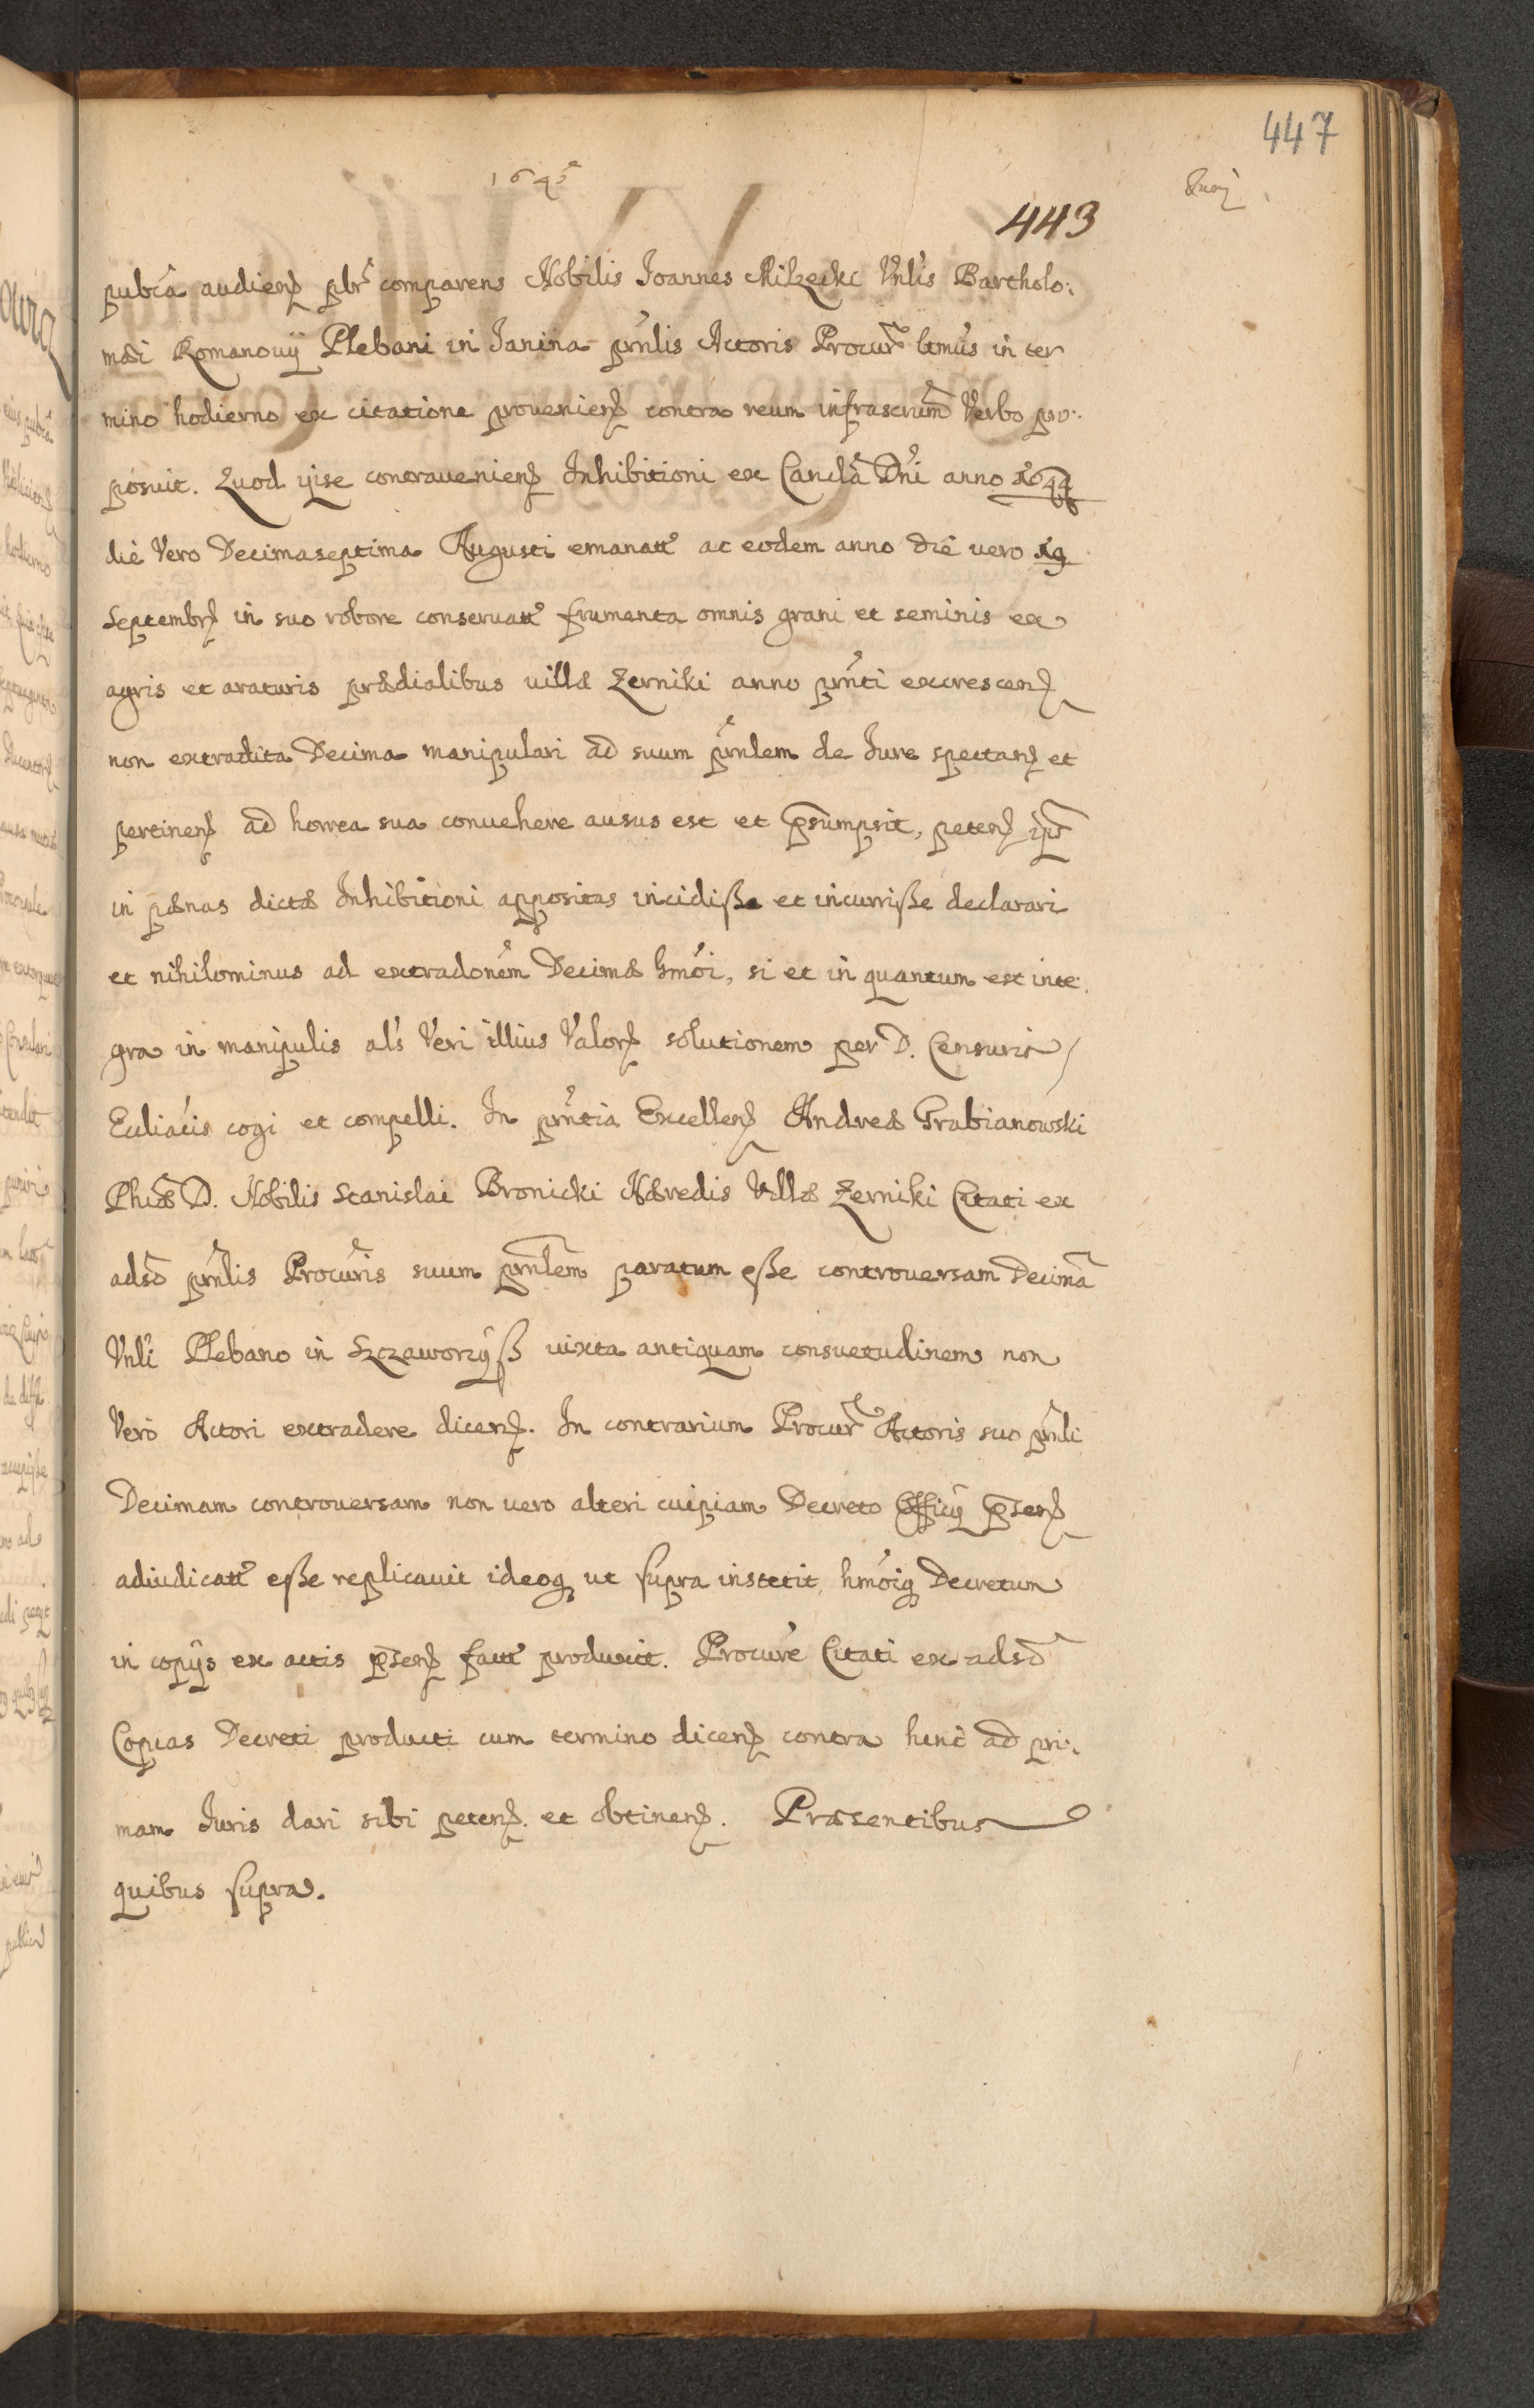 447
1645
443
pubca audien pbr comparens Nobilis Joannes Milzecki Vnlis Bartholo:
mæi Romanouij Plebani in Janina prnlis Actoris Procur ltmus in ter
mino hodierno ex citatione prouenien contra reum infrascrum Verbo pro:
posuit. Quod ipse contrauenien Inhibitioni ex Cancla Dni anno 1644
die Vero Decimaseptima Augusti emanatt ac eodem anno die uero 19
Septembr in suo robore conseruatt frumenta omnis grani et seminis ex
agris et araturis prædialibus uillæ Zerniki anno prnti excrescen
non extradita Decima manipulari ad suum prnlem de Jure spectan et
pertinen ad horrea sua conuehere ausus est et psumpsit, peten ips
in pænas dictæ Inhibitioni appositas incidisse et incurrisse declarari
et nihilominus ad extradonem Decimæ hmoi, si et in quantum est inte.
gra in manipulis als Veri illius Valor solutionem per D. Censuris
Eccliacis cogi et compelli. In prntia Excellen Andreæ Grabianowski
Phiæ D. Nobilis Stanislai Bronicki Hæredis Villæ Zerniki Citati ex
adso prnlis Procuris suum prnlem paratum esse controuersam Decima
Vnli Plebano in Szczaworyß iuxta antiquam consuetudinem non
Vero Actori extradere dicen. In contrarium Procur Actoris suo prnli
Decimam controuersam non uero alteri cuipiam Decreto Officij psen
adiudicatt esse replicauit ideoq ut supra institit, hmoiq Decretum
in copijs ex actis psen fact produxit. Procure Citati ex adso
Copias Decreti producti cum termino dicen contra hinc ad pri:
mam Juris dari sibi peten et obtinen. Præsentibus
quibus supra.